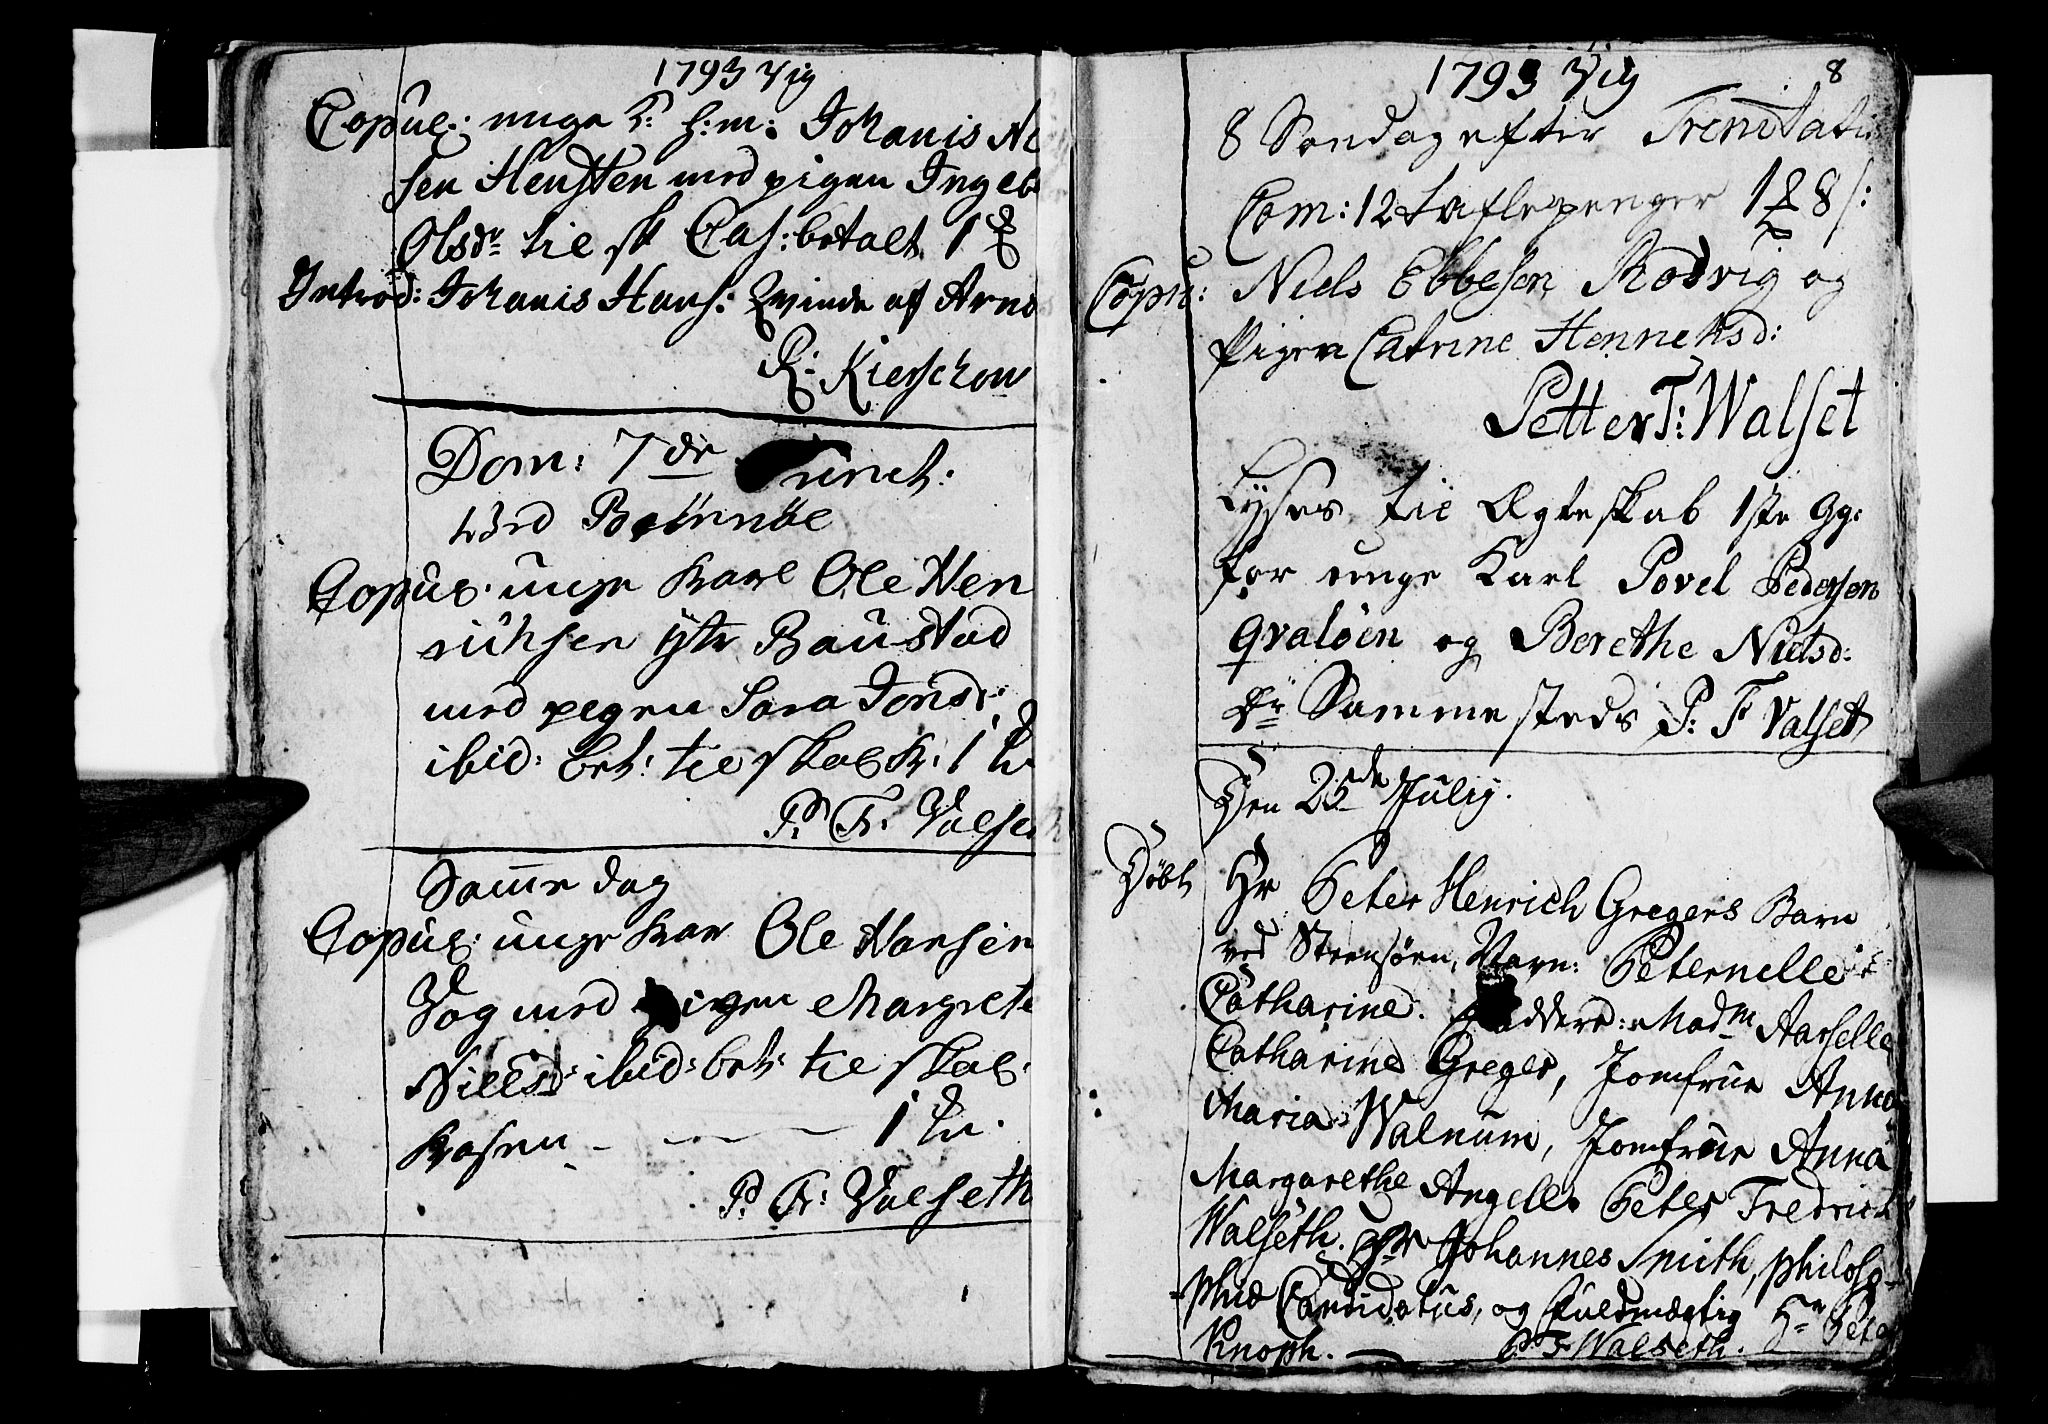 1793 Vig
Copul: unge K: h:m: Johanis Ni
sen Hensten med pigen Ingeb
Olsdr til sk Cas: betalt 1
Introd: Johanis Hans: Qvinde af Arnø
R: Kierschow
Dom: 7de Trinit:
ved Brønnöe
Copul. unge karl Ole Hen
richsen ystr Baustad
med pigen Sara Jonsd:
ibid: bet: til skolek: 1
P: Fr. Valset
Samme dag
Copul: unge kar Ole Hansen
Vog med pigen Margrete
Nilsd: ibid: bet: til skol
kasen - 1
P. Fr: Valseth
1793 Vig 8
8 Søndag efter Trenitatis
Com: 12 tavlepenger 1 8 s:
Copu: Niels Ebbesen Rodvig og
Pigen Catrine Henrichsd:
Petter F: Walset
Lyses til Ægteskab 1ste Gg:
for unge Karl Povel Pedersen
Qvaløen og Berethe Nielsd:
Sammesteds P. F Valset
Den 25de Julij.
Døbt Hr Peter Henrich Gregers Barn
ved Strensøen, Navn: Peternelle
Catharine. Faddere: Madm Aarselle
Catharine Greger, Jomfrue Anna
Maria Walnum, Jomfrue Anna
Margarethe Angell. Peter Fredrich
Walseth. Hr Johannes Smith, philoso-
phiæ Candidatus, og Fuldmægtig Hr Peter
Knoph. P F Walseth.